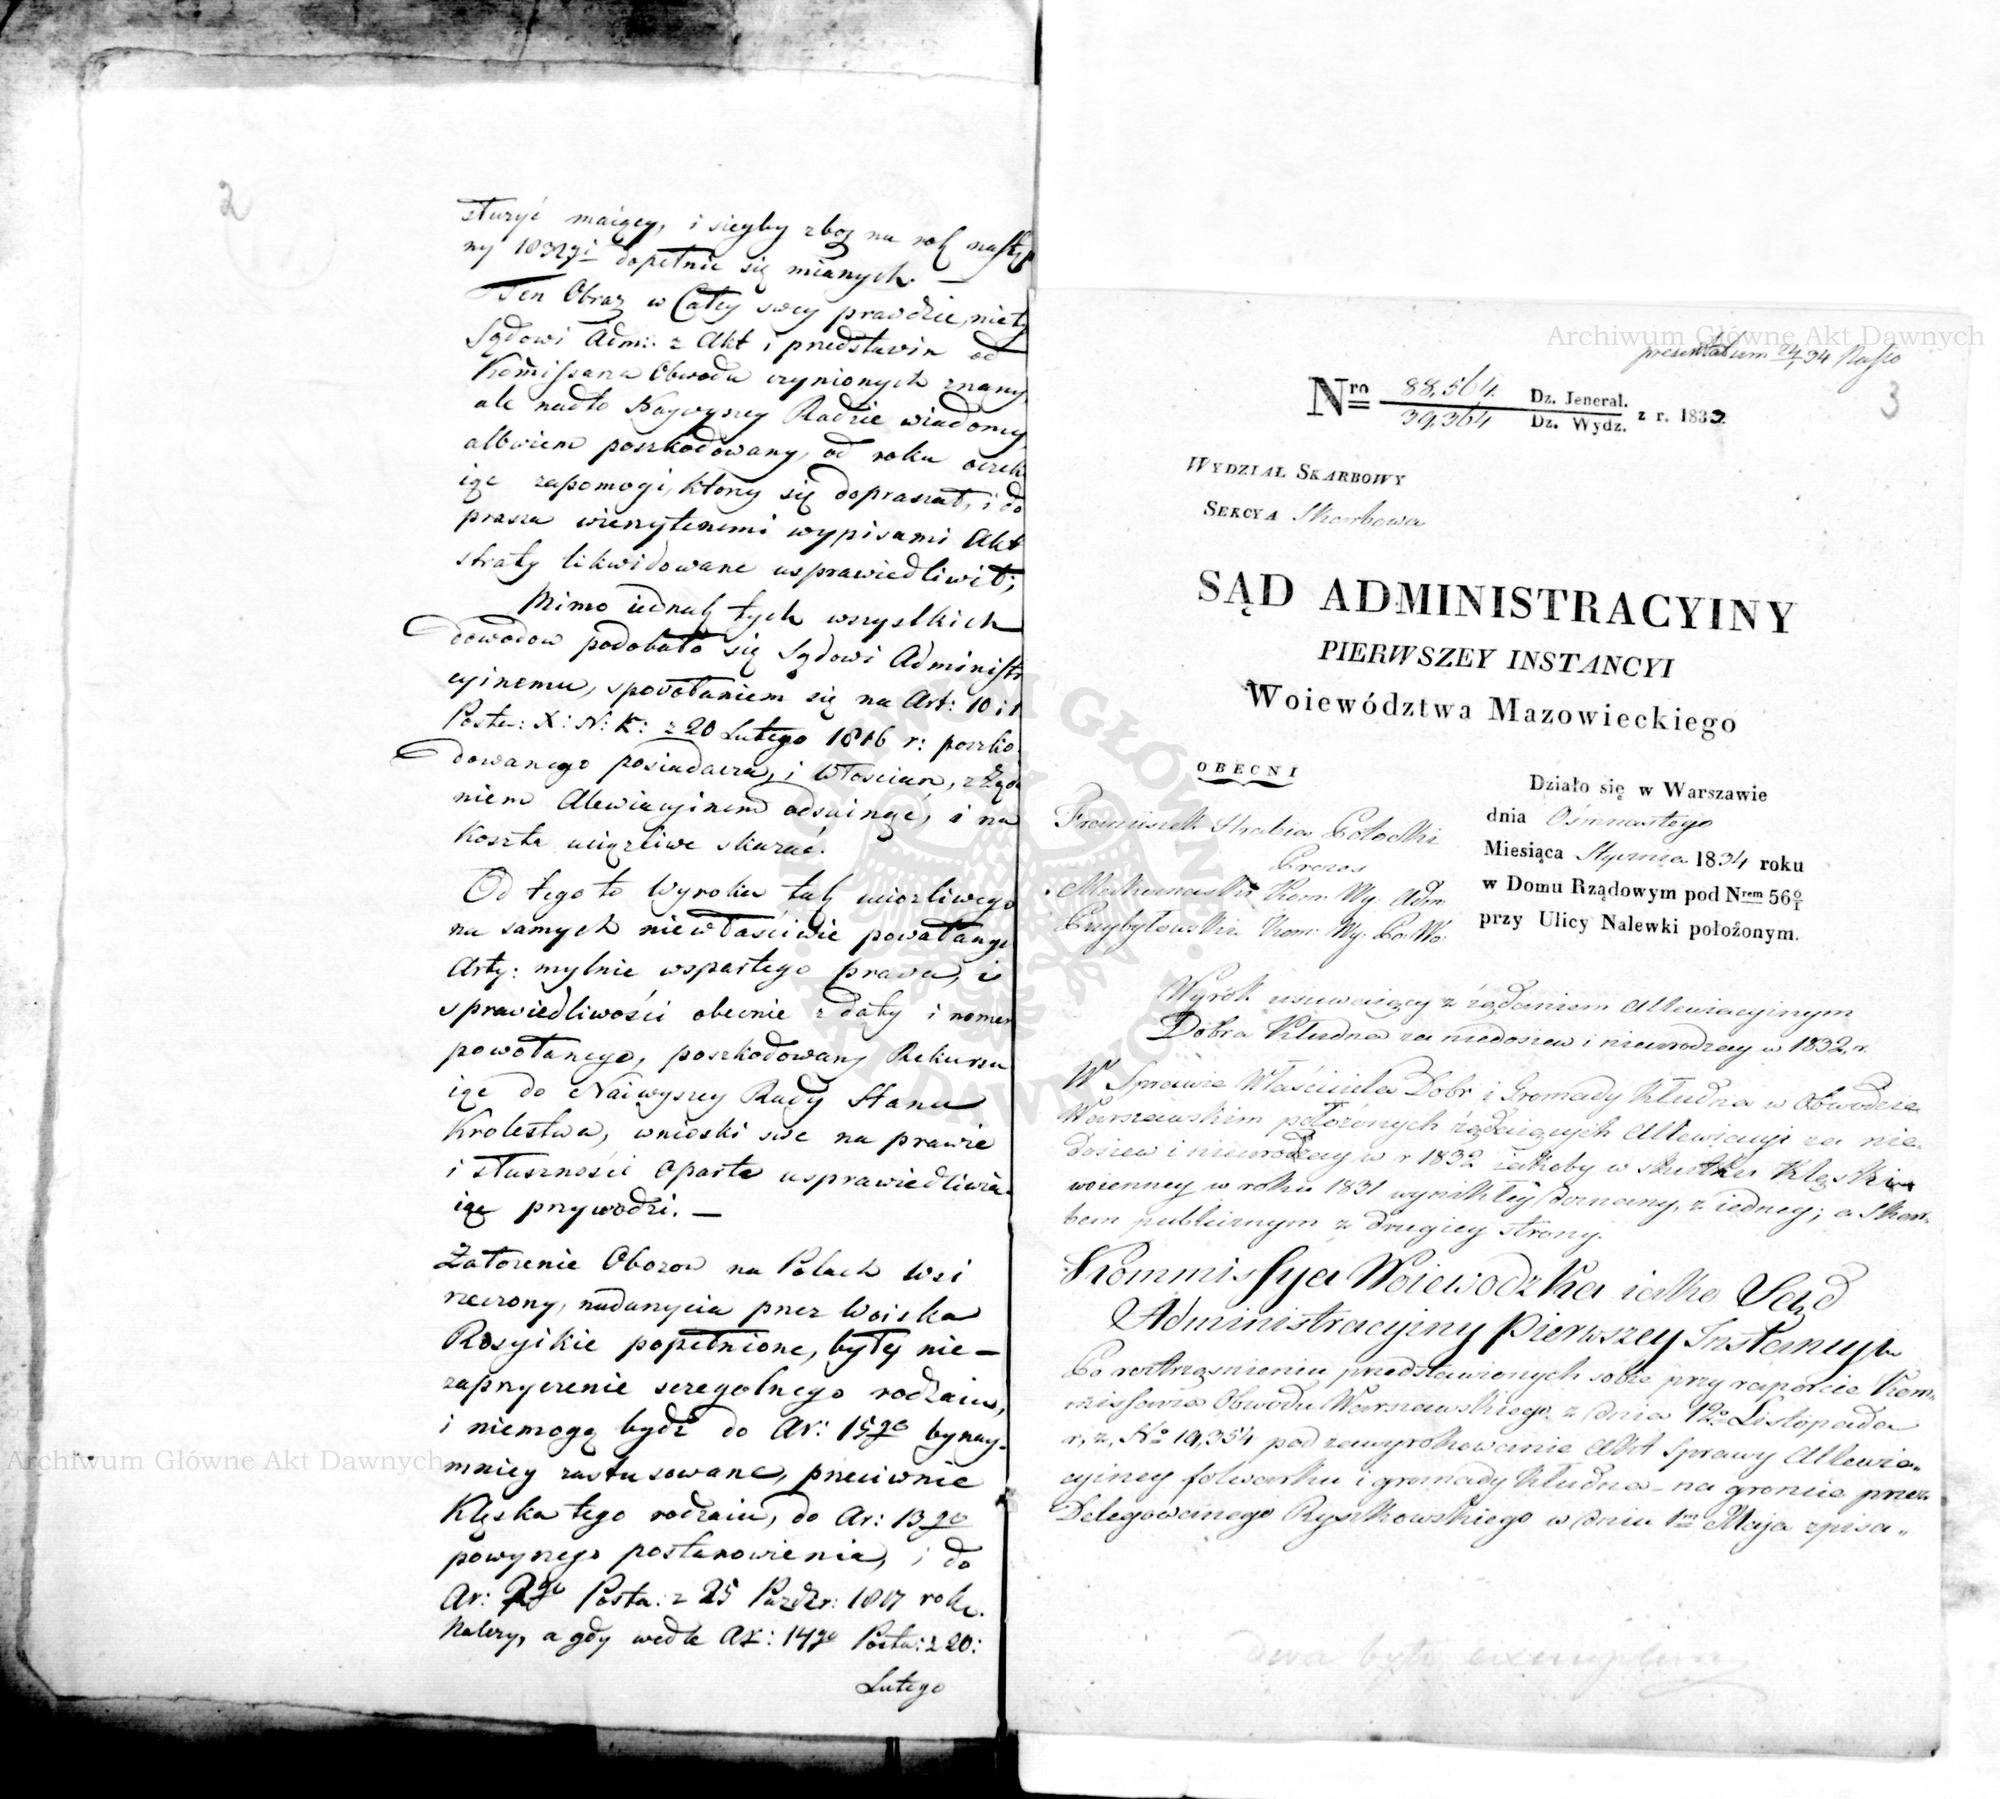 2
służyć maiący, i sieyby zboż na rok nastę
ny 1832gi dopełnić się mianych. —
Ten Obraz w Całey swey prawdzie, niety
Sądowi Adm: z Akt i przedstawień od
Kommissarza Obwodu czynionych znany
ale nadto Naywyszey Radzie wiadomy
albowiem poszkodowany, od roku oczek
iąc zapomogi, ktory się dopraszał, i do
prasza wierzytelnemi wypisami Akt
straty likwidowane usprawiedliwił;
Mimo iednak tych wszystkich
dowodow podobało się Sądowi Administr
cyinemu, z powołaniem się na Art: 10 i 1
Posta: X: N: K: z 20 Lutego 1816 r: poszko
dowanego posiadacza, i Włościan, z żąda
niem Alewiacyinem odsunąć, i na
koszta uciążliwe skazać.
Od tego to Wyroku tak uciążliwego
na samych niewłaściwie powołanych
Arty: mylnie wspartego prawa, i
sprawiedliwości obecnie z daty i nomer
powołanego, poszkodowany Rekursu
iąc do Naiwyszey Rady Stanu
Krolestwa, wnioski swe na prawie
i słuszności oparte usprawiedliwia
iąc przywodzi. —
Założenie Obozow na Polach wsi
rzeczony, nadużycia przez Woiska
Rosyiskie popełnione, były nie—
zaprzeczenie szczegolnego rodzaiu,
i niemogą bydź do Ar: 15go bynay-
mniey zastosowane, przeciwnie
Klęska tego rodzaiu, do Ar: 13go
powyszego postanowienia, i do
Ar: Posta: z 25 Paźdzr: 1817 roku
należy, a gdy wedle Ar: 14go Posta: z 20:
Lutego
presentatum 24/1 34
3
Nro 88,564. Dz. Jeneral.
39,364 Dz. Wydz. z r. 1833.
WYDZIAŁ SKARBOWY
SEKCYA Skarbowa
SĄD ADMINISTRACYINY
PIERWSZEY INSTANCYI
Woiewództwa Mazowieckiego
OBECNI
Franciszek Hrabia Potocki
Prezes
Kom. Wy. Adm
Przybyłowski Kom: Wy:
Działo się w Warszawie
dnia Ośmnastego
Miesiąca Stycznia 1834 roku
w Domu Rządowym pod Nrem 56
przy Ulicy Nalewki położonym.
Wyrok usuwaiący z żądaniem Allewiacyinym
Dobra Kłudna za niedosiew i nieurodzay w 1832 r.
W Sprawie Właściciela Dobr i Gromady Kłudna w Obwodzie
Warszawskim położonych żądaiących Allewiacyi za nie-
dosiew i nieurodzay w r 1832 iakoby w skutku Klęski
woienney w roku 1831 wynikłey doznany, z iedney; a Skar-
bem publicznym z drugiey strony.
Kommissya Woiewodzka iako Sąd
Administracyiny Pierwszey Instancyi
Po roztrząśnieniu przedstawionych sobie przy raporcie Kom-
missarza Obwodu Warszawskiego z dnia 12go Listopada
r, z, No 19,354 pod zawyrokowanie Akt Sprawy Allewia-
cyiney folwarku i gromady Kłudna na gruncie przez
Delegowanego Ryszkowskiego w dniu 1m Maja spisa-
dwa było exemplarz
Archiwum Główne Akt Dawnych
Archiwum Główne Akt Dawnych
ARCHIWUM GŁÓWNE AKT DAWNYCH